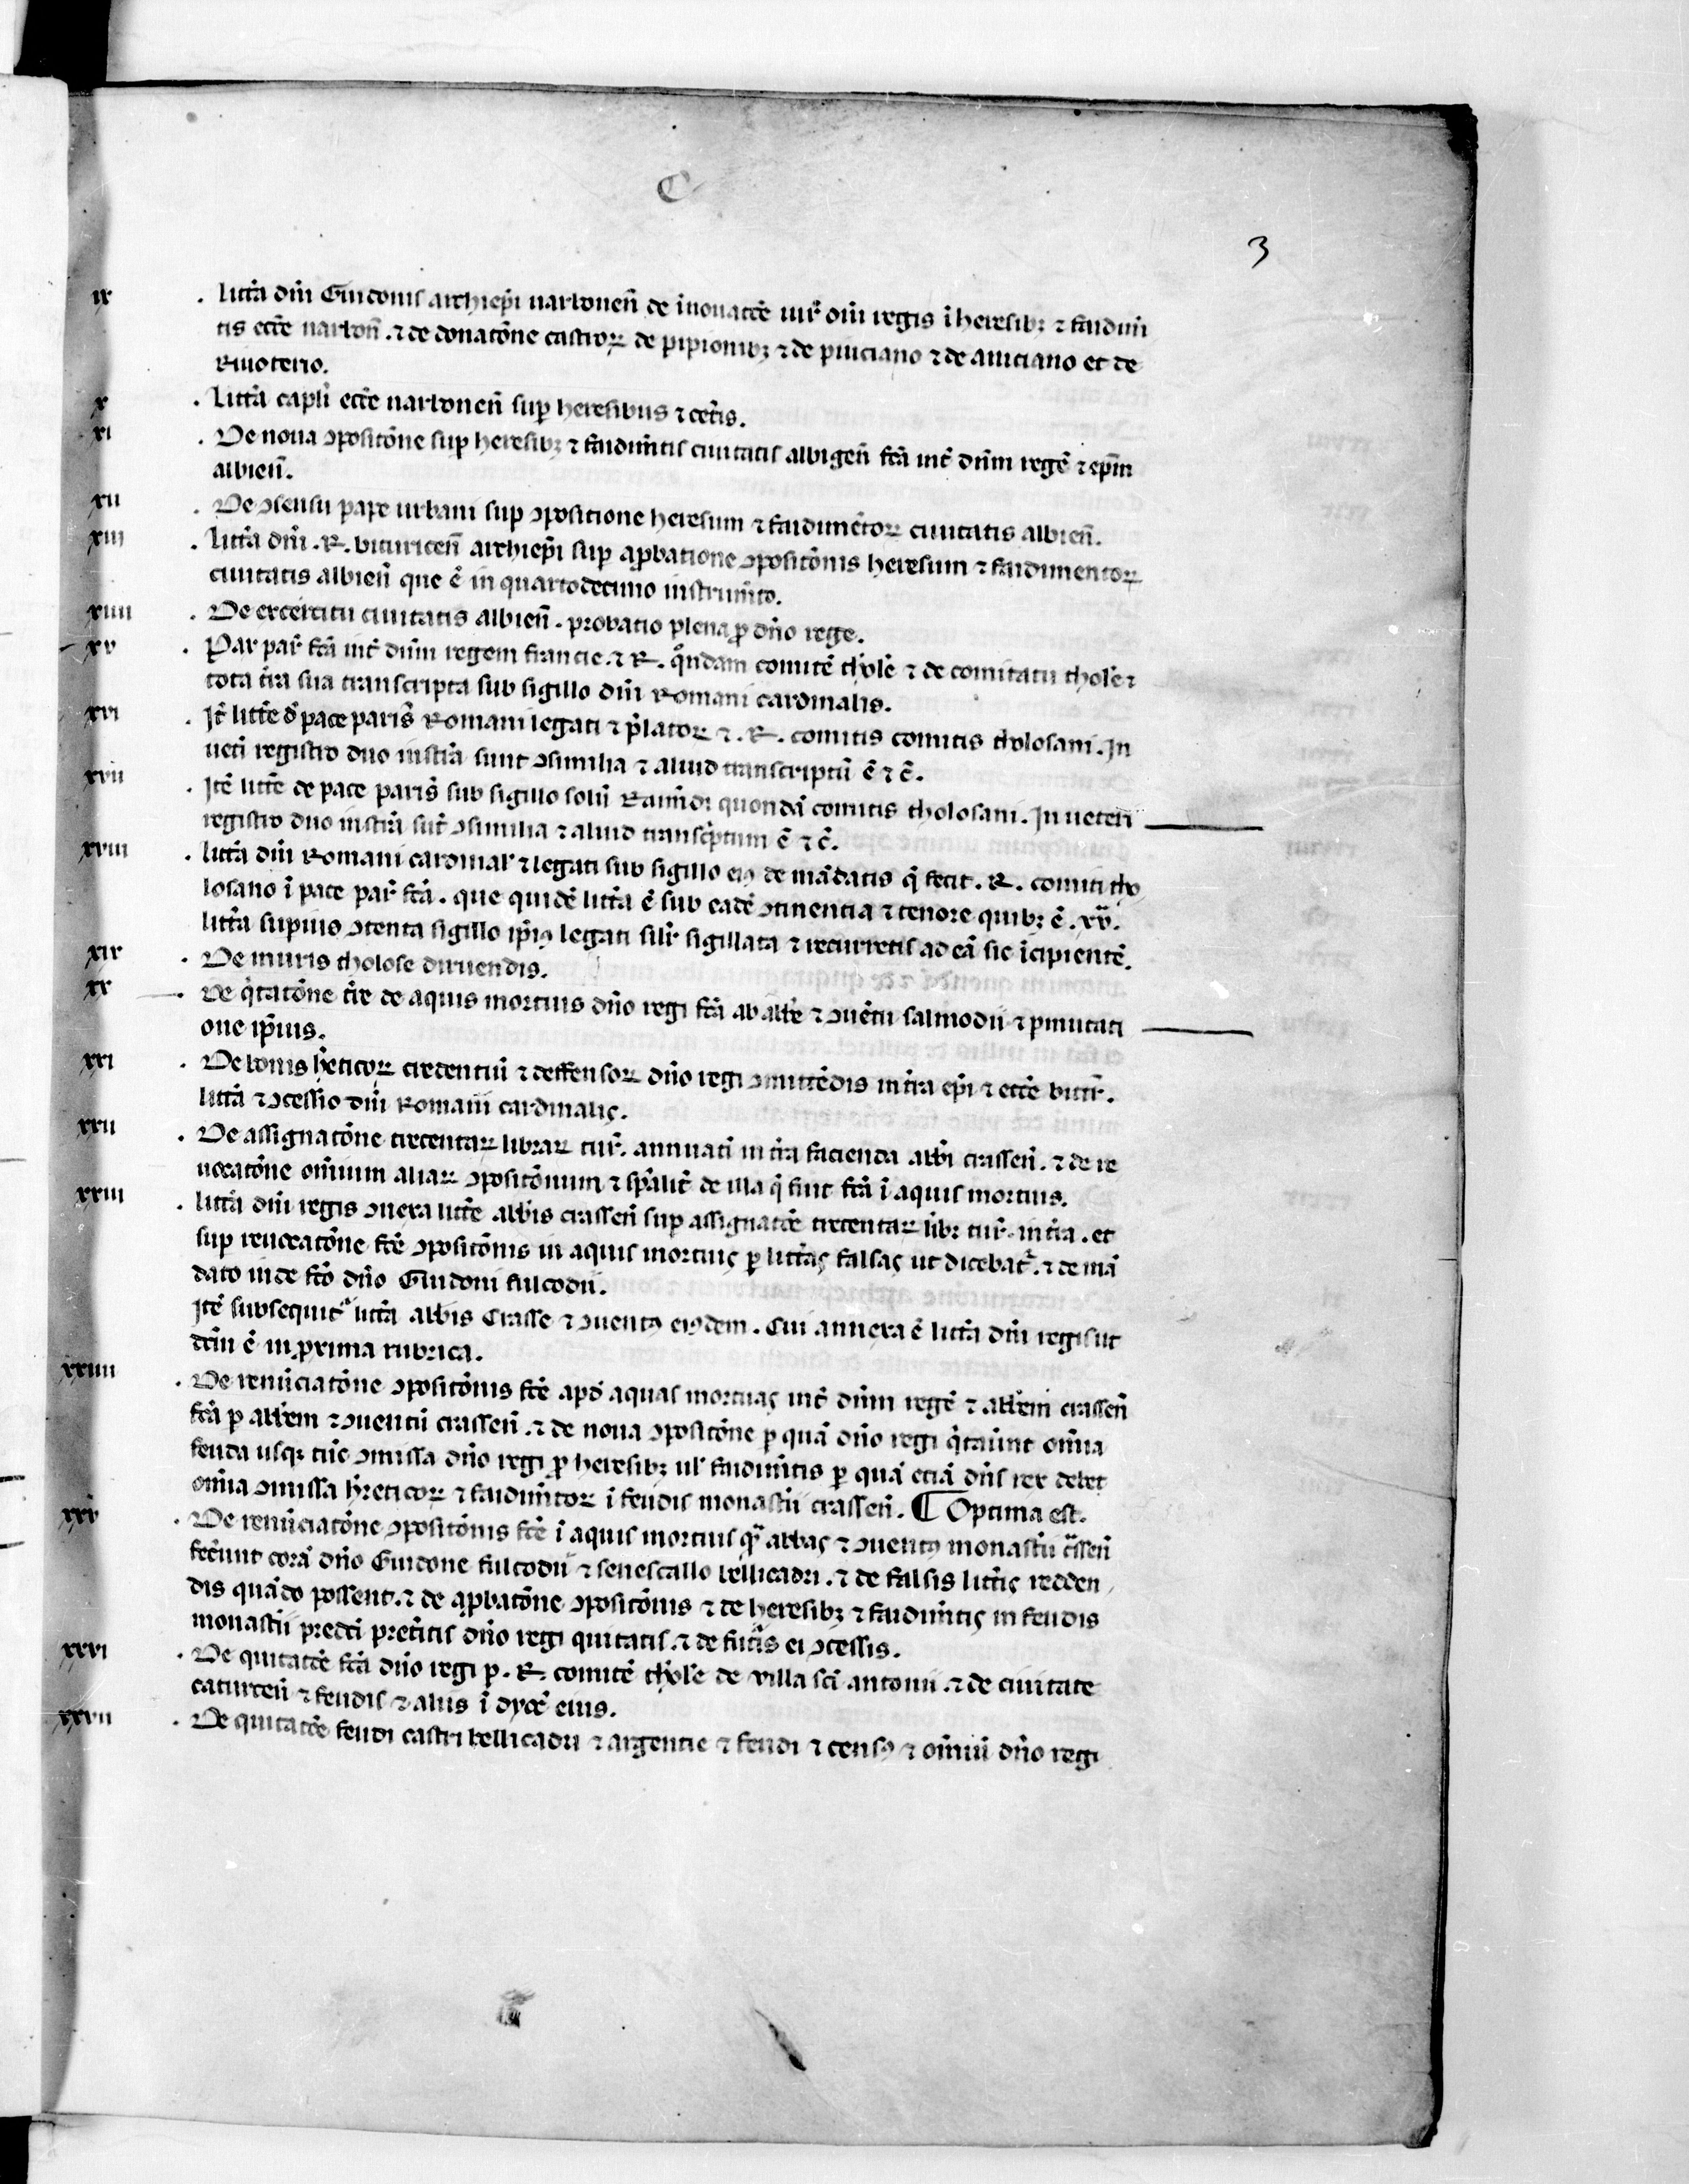 C
3
ix . littã dñi Guidonis archiepĩ narbonen̄ de inouatõe iur̃ dñi regis ĩ heresibꝫ ⁊ faidim
tis ecc̃e narbon̄ . ⁊ de donatõne castroꝝ de pipionibꝫ ⁊ de piuciano ⁊ de auiciano et de
Riuoterio.
x . littã capli ecc̃e narbonen̄ sup̱ heresibus ⁊ cet̃is.
xi . De noua ꝯpositõne sup̱ heresibꝫ ⁊ faidimtis ciuitatis albigen̄ fc̃ã int̃ dñm regẽ ⁊ ep̃m
albien̄.
xii . De ꝯsensu pape urbani sup̱ ꝯpositione heresum ⁊ faidimẽtoꝝ ciuitatis albien̄.
xiii . littã dñi .R. bituricen̄ archiepĩ sup̱ apꝓbatione ꝯpositõnis heresum ⁊ faidimentoꝝ
ciuitatis albien̄ que ẽ in quartodecimo instrum̃to.
xiiii . De exercitu ciuitatis albien̄ . probatio plena ꝓ dño rege.
xv . Pax par̃ fc̃ã int̃ dñm regem francie . ⁊ R. qͦndam comitẽ thol̃e ⁊ de comitatu thol̃e ⁊
tota t̃ra sua transcripta sub sigillo dñi Romani cardinalis.
xvi . Jt̃ litt̃e d̃ pace paris̃ Romani legati ⁊ p̃latoꝝ ⁊ .R. comitis comitis tholosani . Jn
uet̃i registro duo instr̃a sunt ꝯsimilia ⁊ aliud transcriptũ ẽ ⁊ c̃.
xvii . Jtẽ litt̃e de pace paris̃ sub sigillo soliꝰ Raim̃di quondã comitis tholosani . Jn ueteri
registro duo instr̃a sũt ꝯsimilia ⁊ aliud transc̃ptum ẽ ⁊ c̃.
xviii . littã dñi Romani cardinal̃ ⁊ legati sub sigillo eiꝰ de mãdatis q̃ fecit . R . comiti tho
losano ĩ pace par̃ fc̃ã . que quidẽ littã ẽ sub eadẽ ꝯtinentia ⁊ tenore quibꝫ ẽ . xv̄.
littã sup̱ius ꝯtenta sigillo ip̃iꝰ legati sil̃r sigillata ⁊ recurretis ad eã sic ĩcipientẽ.
xix . De muris tholose diruendis.
xx . De q̃tatõne t̃re de aquis mortuis dño regi fc̃ã ab abb̃e ⁊ ꝯuẽtu salmodii ⁊ p̱mutati
one ip̃ius.
xxi . De bonis h̃eticoꝝ credentiũ ⁊ deffensoꝝ dño regi ꝯmittẽdis in t̃ra epĩ ⁊ ecc̃e bit̃r.
littã ⁊ ꝯcessio dñi Romani cardinalis.
xxii . De assignatõne trecentaꝝ libraꝝ tur̃ . annuati in t̃ra facienda abb̃i crassen̄ . ⁊ de re
uocatõne om̃ium aliaꝝ ꝯpositõnum ⁊ sp̃alit̃ de illa q̃ fuit fc̃ã ĩ aquis mortuis.
xxiii . littã dñi regis ꝯnexa litt̃e abb̃is crassen̄ sup̱ assignatõe trecentaꝝ libꝝ tur̃ in t̃ra . et
sup̱ reuocatõne fc̃e ꝯpositõnis in aquis mortuis ꝑ litt̃as falsas ut dicebat̃ . ⁊ de mã
dato inde fc̃o dño Guidoni fulcodii.
Jtẽ subsequit̃ littã abb̃is Crasse ⁊ ꝯuentꝰ eiꝰdem . Cui annexa ẽ littã dñi regis ut
dc̃m ẽ in proxima rubrica.
xxiiii . De renũciatõne ꝯpositõnis fc̃e apd̃ aquas mortuas int̃ dñm regẽ ⁊ abb̃em crassen̄
fc̃ã ꝑ abb̃em ⁊ ꝯuentũ crassen̄ . ⁊ de noua ꝯpositõne ꝑ quã dño regi q̃tauĩt om̃ia
feuda usqꝫ tũc ꝯmissa dño regi ꝓ heresibꝫ ul̃ faidim̃tis ꝑ quã etiã dñs rex debet
om̃ia ꝯmissa h̃reticoꝝ ⁊ faidim̃toꝝ ĩ feudis monast̃ii crassen̄. ¶ Optima est.
xxv . De renũciatõne ꝯpositõnis fc̃e ĩ aquis mortuis qͣ abbas ⁊ ꝯuentꝰ monast̃ii c̃ssen̄
fec̃unt corã dño Guidone fulcodii ⁊ senescallo bellicadri . ⁊ de falsis litt̃is redden
dis quãdo possent . ⁊ de apꝓbatõne ꝯpositõnis ⁊ de heresibꝫ ⁊ faidim̃tis in feudis
monast̃ii predc̃i pret̃itis dño regi quitatis . ⁊ de fut̃is ei ꝯcessis.
xxvi . De quitatõe fc̃ã dño regi ꝑ . R . comitẽ thol̃e de villa sc̃i antonii . ⁊ de ciuitate
caturcen̄ ⁊ feudis ⁊ aliis ĩ dyoc̃ eius.
xxvii . De quitatõe feudi castri bellicadri ⁊ argencie ⁊ feudi ⁊ censꝰ ⁊ om̃iũ dño regi